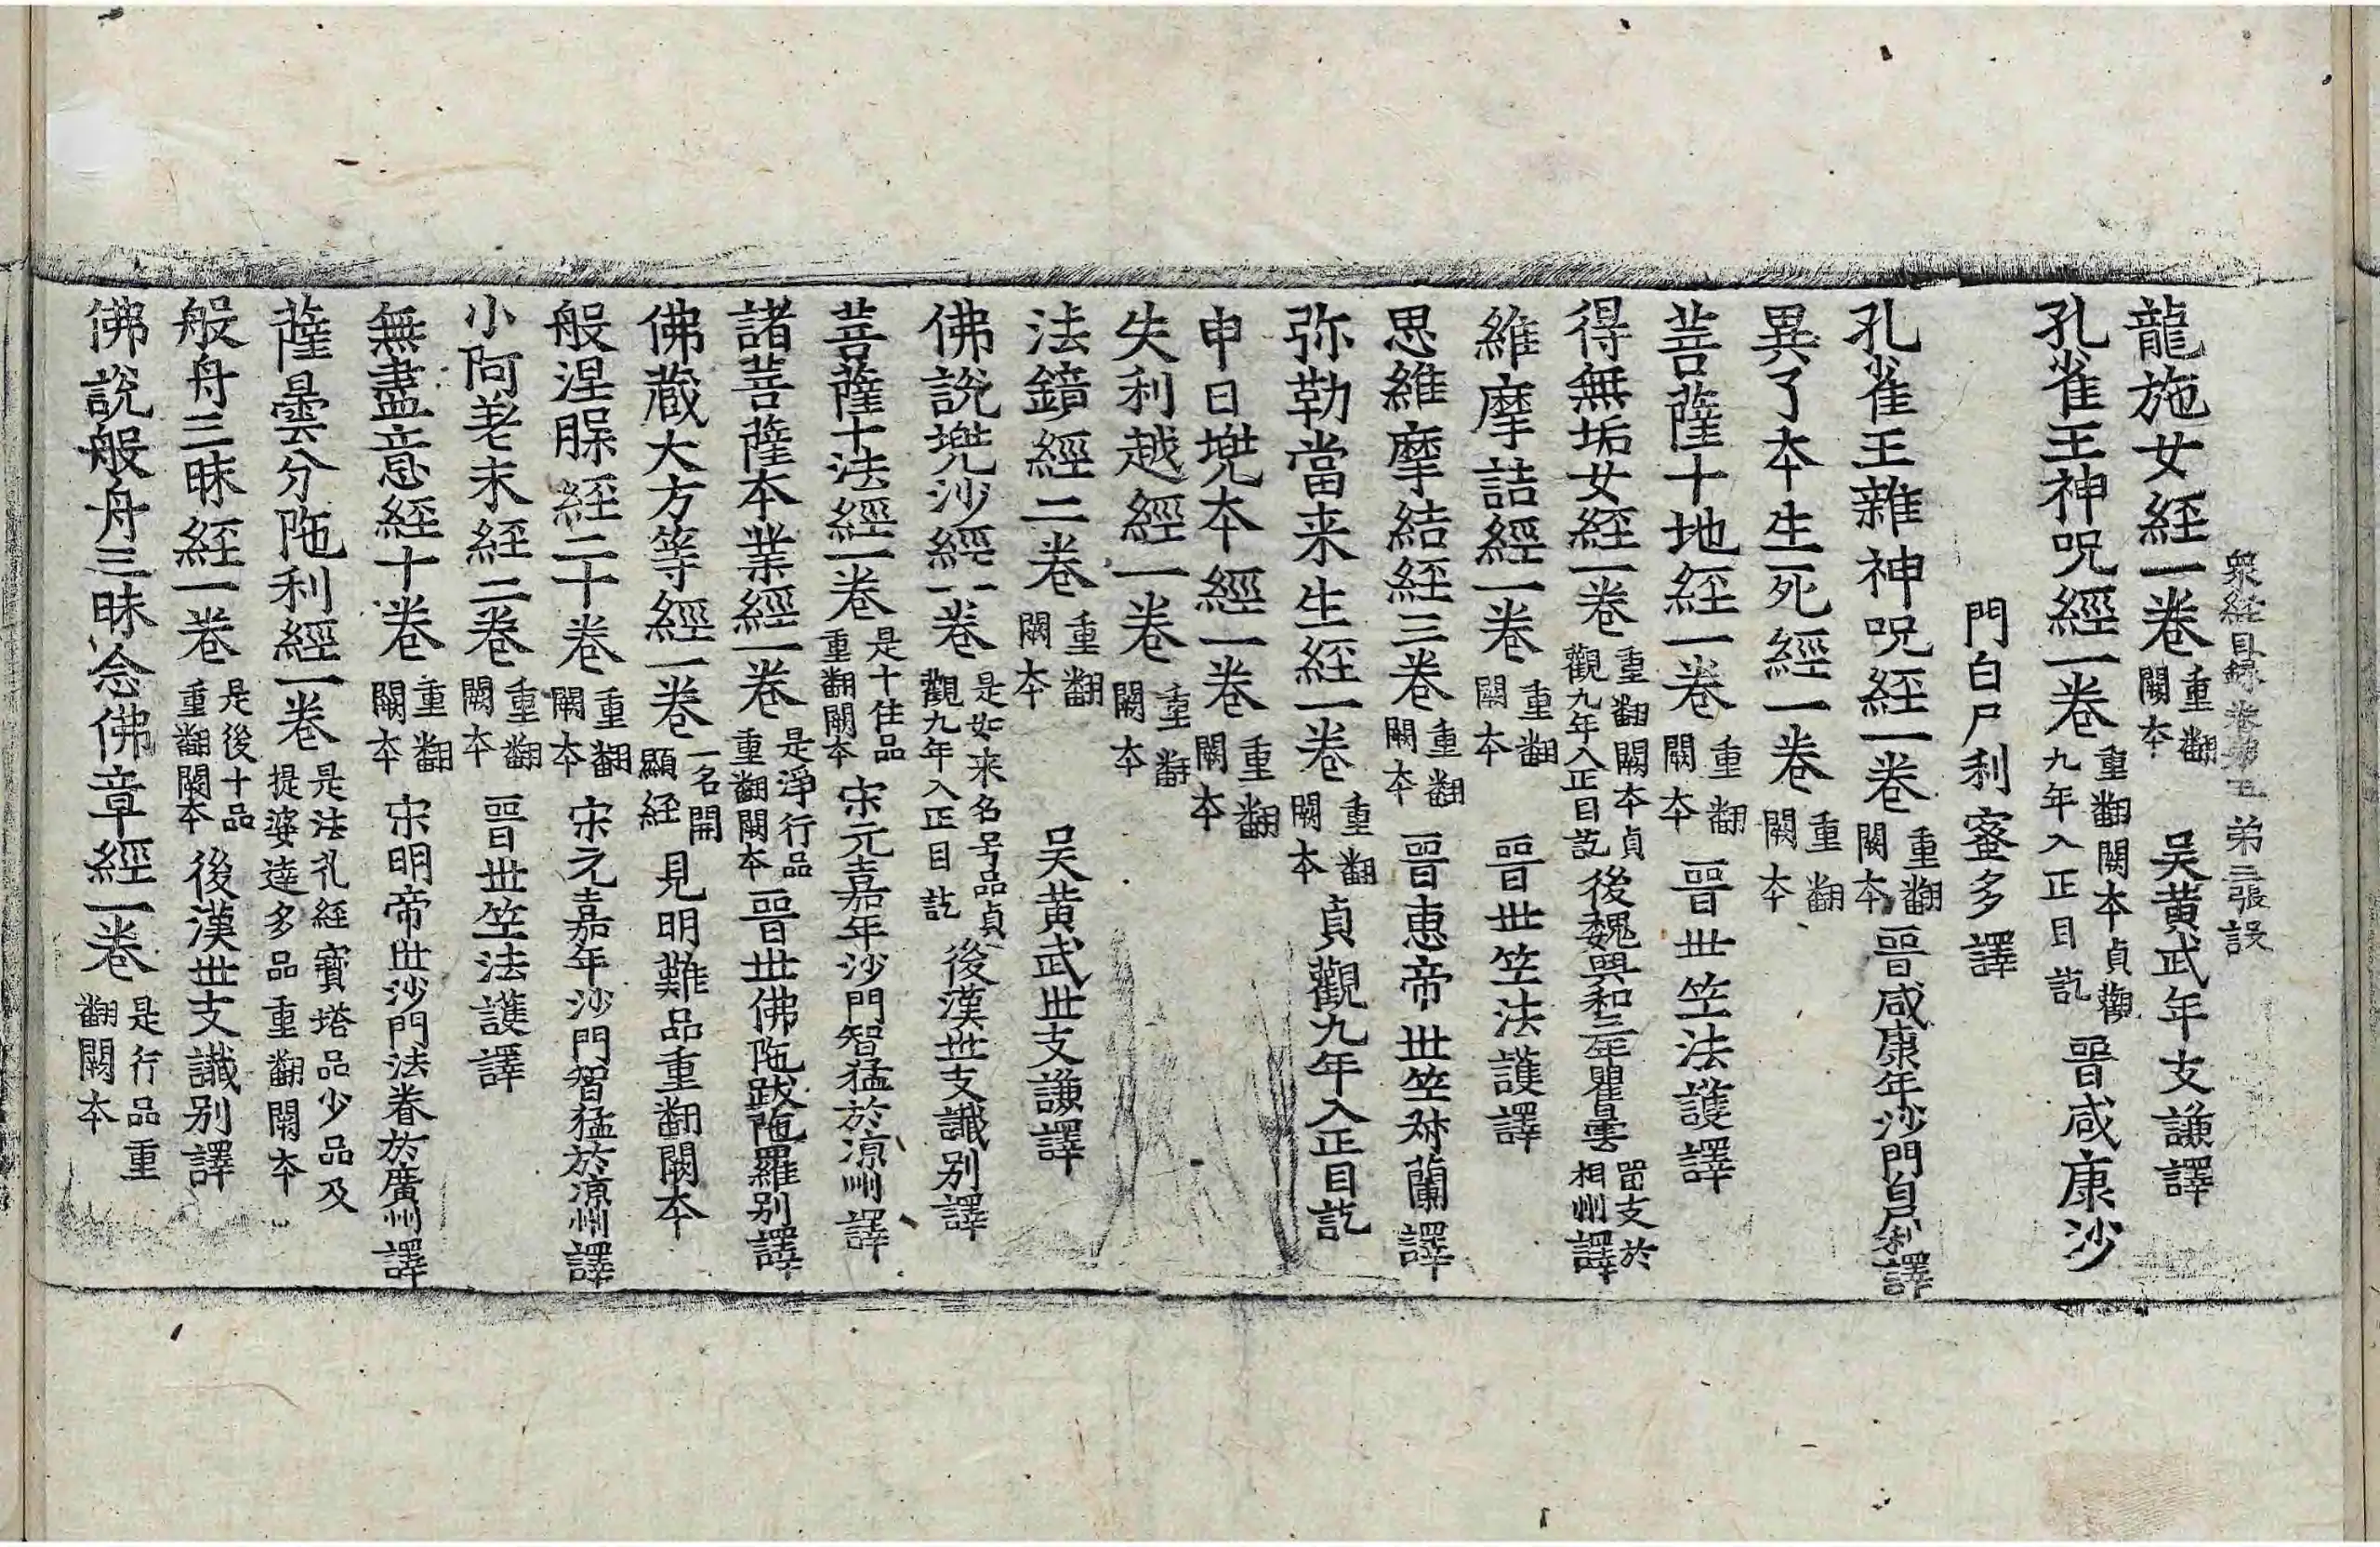 衆經目録卷第五　第三張　設
龍施女經一卷重翻闕本　吴黃武年支謙譯
孔雀王神呪經一卷重翻闕本貞觀九年入正目訖　晉咸康沙
門白尸利蜜多譯
孔雀王雜神呪經一卷重翻闕本　晉咸康年沙門白尸利譯
異了本生死經一卷重翻闕本
菩薩十地經一卷重翻闕本　晉世竺法護譯
得無垢女經一卷重翻闕本貞觀九年入正目訖　後魏興和三年瞿曇留支於相州譯
維摩詰經一卷重翻闕本　晉世竺法護譯
思維摩結經三卷重翻闕本　晉惠帝世竺叔蘭譯
弥勒當来生經一卷重翻闕本　貞觀九年入正目訖
申日兠本經一卷重翻闕本
失利越經一卷重翻闕本
法鏡經二卷重翻闕本　吴黃武世支謙譯
佛說兠沙經一卷是如来名号品貞觀九年入正目訖　後漢世支讖别譯
菩薩十法經一卷是十住品重翻闕本　宋元嘉年沙門智猛於涼州譯
諸菩薩本業經一卷是淨行品重翻闕本　晉世佛陁跋陁羅别譯
佛藏大方等經一卷一名問顯經　見明難品重翻闕本
般涅脵經二十卷重翻闕本　宋元嘉年沙門智猛於涼州譯
小阿差末經二卷重翻闕本　晉世竺法護譯
無盡意經十卷重翻闕本　宋明帝世沙門法眷於廣州譯
薩曇分陁利經一卷是法花經寶塔品少品及提婆達多品重翻闕本
般舟三昧經一卷是後十品重翻闕本　後漢世支讖别譯
佛說般舟三昧念佛章經一卷是行品重翻闕本